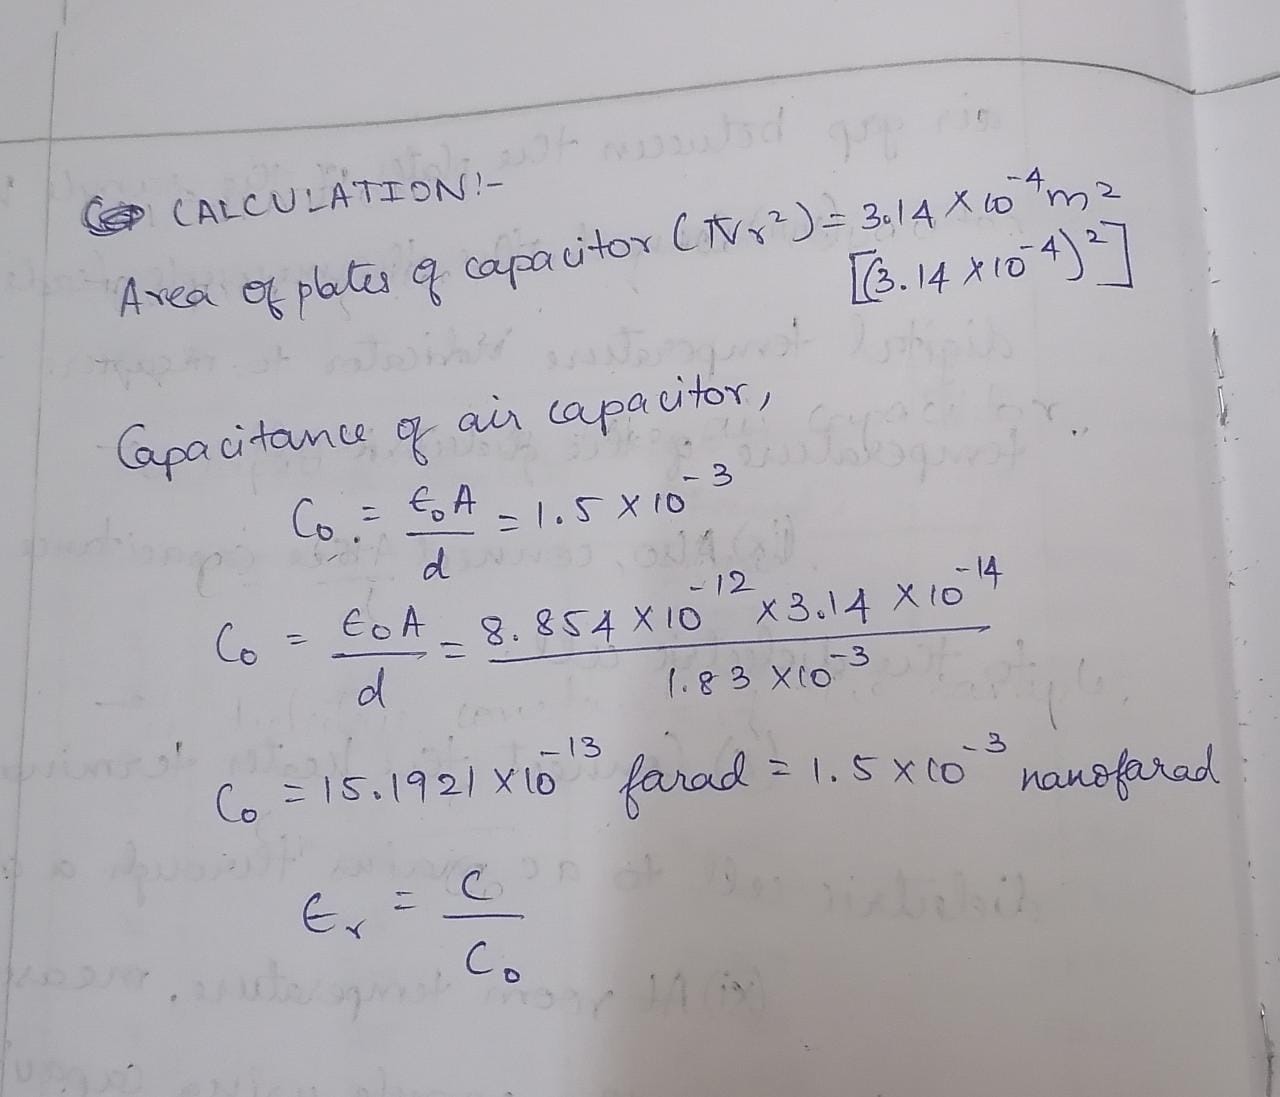 CALCULATION:-
Area of plates of capacitor (πr²) = 3.14 × 10⁻⁴ m²
[(3.14 × 10⁻⁴)²]
Capacitance of air capacitor,
C₀ = ε₀A / d = 1.5 × 10⁻³
C₀ = ε₀A / d = 8.854 × 10⁻¹² × 3.14 × 10⁻¹⁴ / 1.83 × 10⁻³
C₀ = 15.1921 × 10⁻¹³ farad = 1.5 × 10⁻³ nanofarad
εᵣ = C / C₀